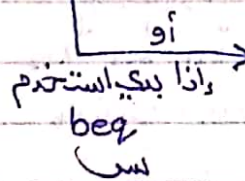 أو
إذا بدي استخدم
beq
بس